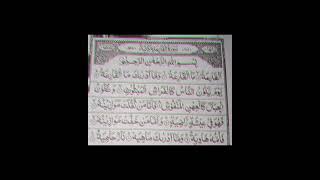 بسم الله الرحمن الرحيم
القارعة ما القارعة وما أدراك ما القارعة
يوم يكون الناس كالفراش المبثوث وتكون
الجبال كالعهن المنفوش فأما من ثقلت موازينه
فهو في عيشة راضية وأما من خفت موازينه
فأمه هاوية وما أدراك ماهيه نار حامية